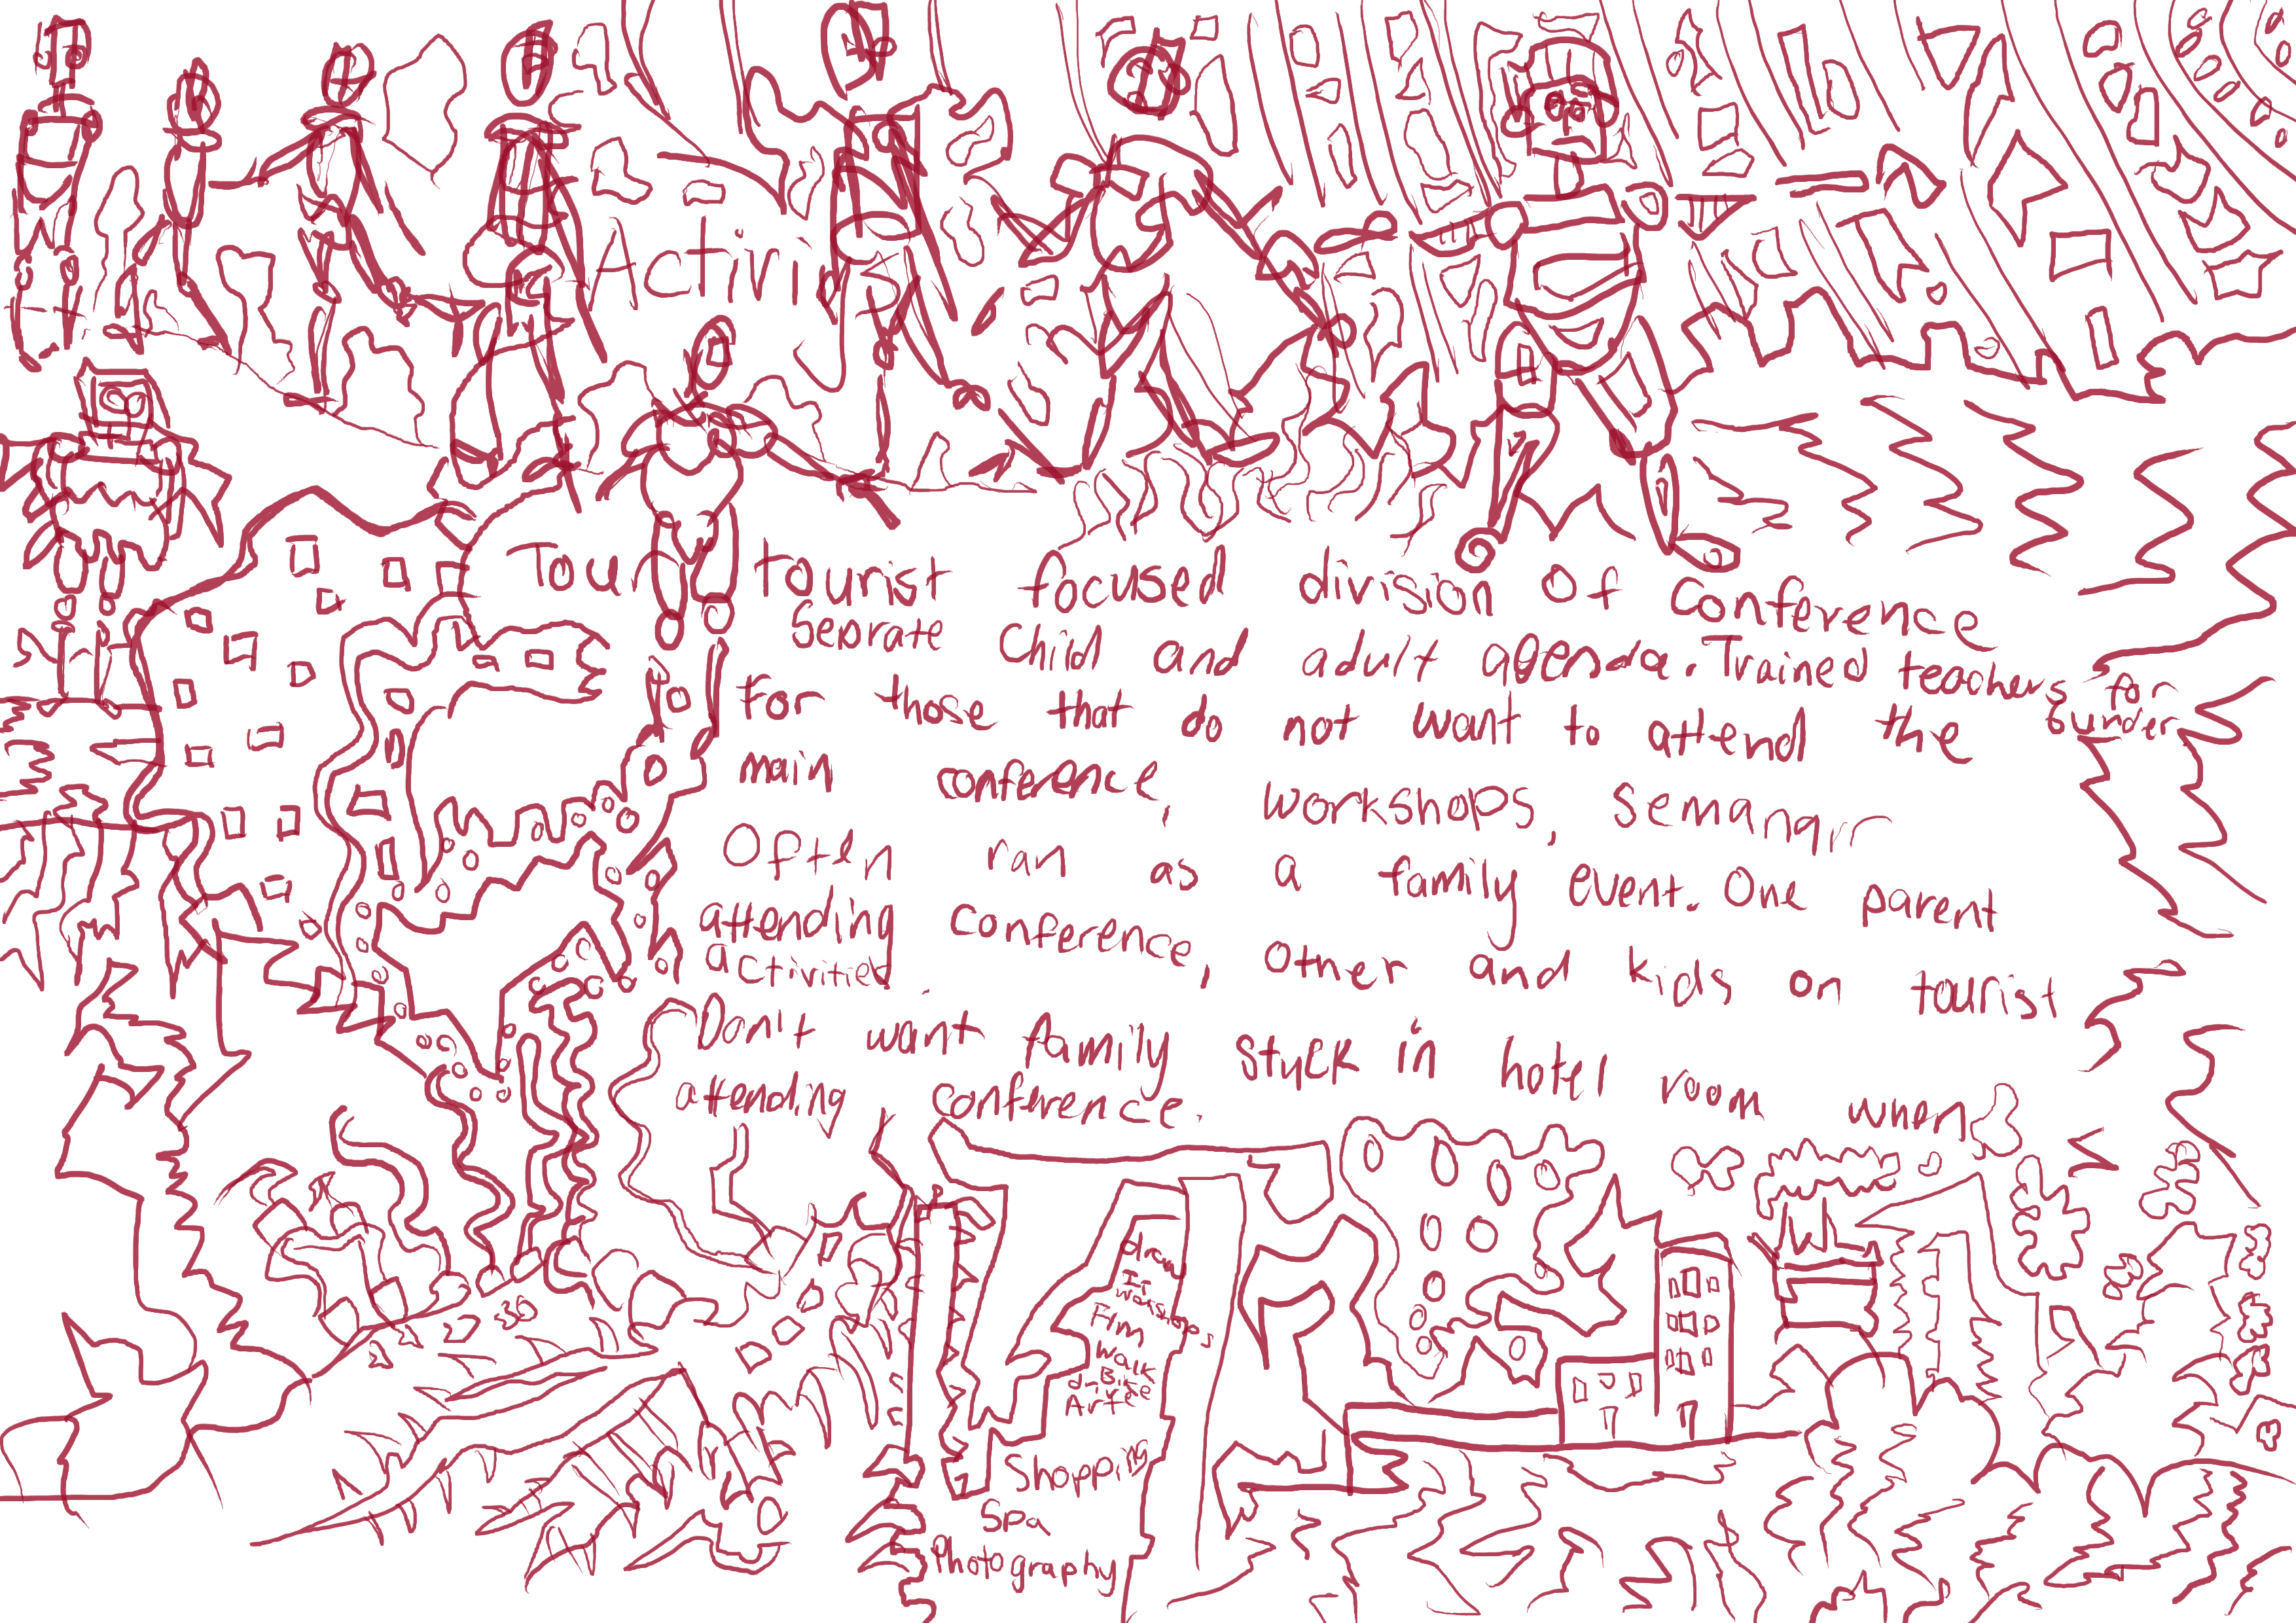 Activi
Tour tourist focused division of Conference
Seprate Child and adult agenda. Trained teachers for
6 under
For those that do not want to attend the
main conference, workshops, Semanarr
Often ran as a family event. One parent
attending conference, other and kids on tourist
activities.
Don't want family stuck in hotel room when
attending conference.
draw
It
workshops
Film
Walk
Bike
Shopping
Spa
Photography